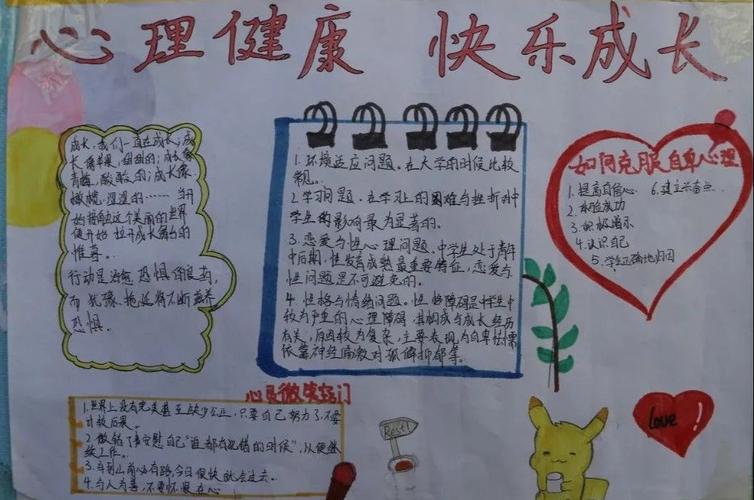 心理健康 快乐成长
成长,我们一直在成长;成
长像苹果,甜甜的;成长像
青梅,酸酸的;成长像
橄榄,涩涩的……当
帷幕。
行动是治愈恐惧的良药,
而犹豫、拖延将不断滋养
恐惧。
1.环境适应问题。在大学的时候比较
常见。
2.学习问题。在学习上的困难与挫折对中
学生的影响最为显著的。
3.恋爱与性心理问题。中学生处于青年
中后期,性发育成熟是重要特征,恋爱与
性问题是不可避免的。
4.性格与情绪问题。性格障碍是中学生中
较为严重的心理障碍,其构成与成长经历
有关,原因较为复杂,主要表现为自卑怯懦
依赖神经质敌对孤僻抑郁等。
如何克服自卑心理
1.提高自信心 6.建立
2.体验成功
3.积极暗示
4.认识自己
5.学生正确地归因
心灵微笑窍门
1.世界上没有完美甚至缺少公正,只要自己努力了,不要
计较后果。
2.做错了事安慰自己“谁都有犯错的时候”,从便继
续工作。
3.车到山前必有路,今日很快就会过去。
4.与人为善,不要怀恨在心
Rest!
love